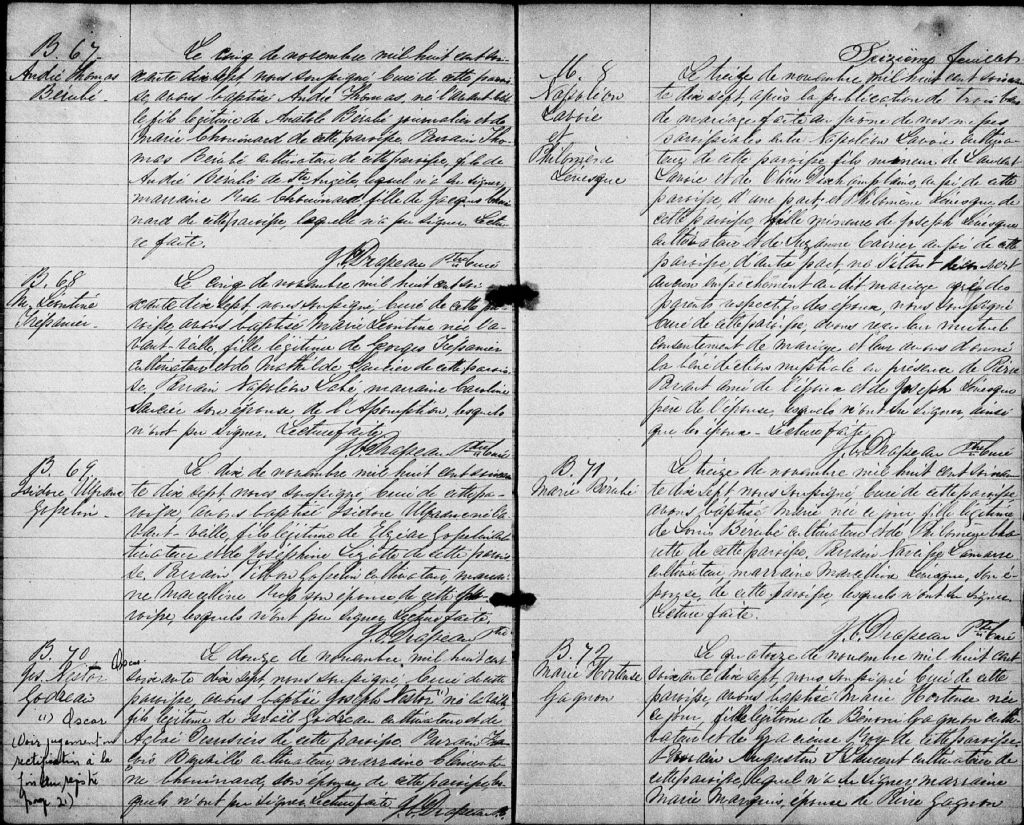 B. 67
André Thomas
Bérubé.
Le cinq de novembre mil huit cent soi-
xante dix sept nous soussigné Curé de cette parois-
se, avons baptisé André Thomas, né l'avant veil-
le, fils légitime de Anatole Bérubé journalier et de
Marie Chouinard de cette paroisse. Parrain Tho-
mas Bérubé cultivateur de cette paroisse, fils de
André Bérubé de Ste Angèle, lequel n'a su signer,
marraine Rose Chouinard, fille de Jacques Choui-
nard de cette paroisse, laquelle n'a pu signer. Lectu-
re faite.
J. C. Drapeau Ptre Curé
B. 68
M. Léontine
Trépanier
Le cinq de novembre mil huit cent soi-
xante dix sept, nous soussigné, Curé de cette pa-
roisse, avons baptisé Marie Léontine née l'a-
vant-veille, fille légitime de Georges Trépanier
cultivateur et de Mathilde Gautier de cette parois-
se. Parrain Napoléon marraine Caroline
son épouse de l'Assomption, lesquels
n'ont pu signer. Lecture faite
J. C. Drapeau Ptre Curé
B. 69
Isidore Ulfranc
Gosselin
Le dix de novembre mil huit cent soixan-
te dix sept nous soussigné Curé de cette pa-
roisse avons baptisé Isidore né l'a-
vant-veille, fils légitime de Elzéar Gosselin cul-
tivateur et de Joséphine Lizotte de cette parois-
se. Parrain Gosselin cultivateur, marrai-
ne Marcelline son épouse de cette pa-
roisse, lesquels n'ont pu signer. Lecture faite.
J. C. Drapeau Ptre
B. 70
Oscar
Jos. Nestor
Godreau
(1) Oscar
(Voir jugement en
rectification à la
fin du registre
page 21)
Le douze de novembre mil huit cent
soixante dix sept nous soussigné Curé de cette
paroisse, avons baptisé Joseph Nestor (1) né la veille
fils légitime de Israël Godreau cultivateur et de
Aglaé Desrosiers de cette paroisse. Parrain Fran-
çois Banville cultivateur marraine Clémenti-
ne Chouinard, son épouse de cette paroisse, les-
quels n'ont pu signer. Lecture faite. J. C. Drapeau
Treizième feuillet
M. 8
Napoléon
Lavoie
et
Philomène
Levesque
Le treize de novembre, mil huit cent soixan-
te dix sept, après la publication de trois bans
de mariage faite au prône de nos messes
paroissiales entre Napoléon Lavoie cultiva-
teur de cette paroisse, fils mineur de Laurent
Lavoie et de Olive Deschamplains, aussi de cette
paroisse, d'une part, et Philomène Levesque de
cette paroisse, fille mineure de Joseph Levesque
cultivateur et de Suzanne Carrier aussi de cette
paroisse, d'autre part, ne s'étant découvert
aucun empêchement au dit mariage des
parents respectifs des époux, nous soussigné
curé de cette paroisse, avons reçu leur mutuel
consentement de mariage et leur avons donné
la bénédiction nuptiale en présence de Pierre
Parant ami de l'époux et de Joseph Levesque
père de l'épouse, lesquels n'ont su signer, ainsi
que les époux. Lecture faite.
J. C. Drapeau Ptre Curé
B. 71
Marie Bérubé
Le treize de novembre mil huit cent soixan-
te dix sept nous soussigné Curé de cette paroisse
avons baptisé Marie née ce jour, fille légitime
de Louis Bérubé cultivateur et de Philomène
de cette paroisse. Parrain Narcisse Lamarre
cultivateur, marraine Marcelline Levesque, son é-
pouse, de cette paroisse, lesquels n'ont su signer.
Lecture faite.
J. C. Drapeau Ptre Curé
B. 72
Marie Hortense
Gagnon
Le quatorze de novembre mil huit cent
soixante dix sept, nous soussigné Curé de cette
paroisse, avons baptisé Marie Hortense née
ce jour, fille légitime de Bénoni Gagnon culti-
vateur et de Gracieuse Roy de cette paroisse.
Parrain Augustin St Laurent cultivateur de
cette paroisse, lequel n'a su signer, marraine
Marie Marquis, épouse de Pierre Gagnon